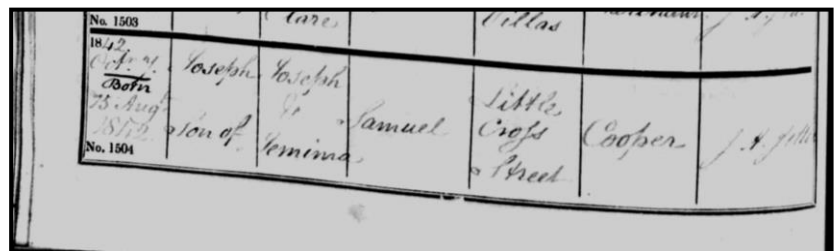 No. 1503
Clare
Villas
1842
Octr
Born
15 Augt
1842
No. 1504
Joseph
Son of
Joseph
&
Jemima
Samuel
Little
Cross
Street
Cooper
J. A.